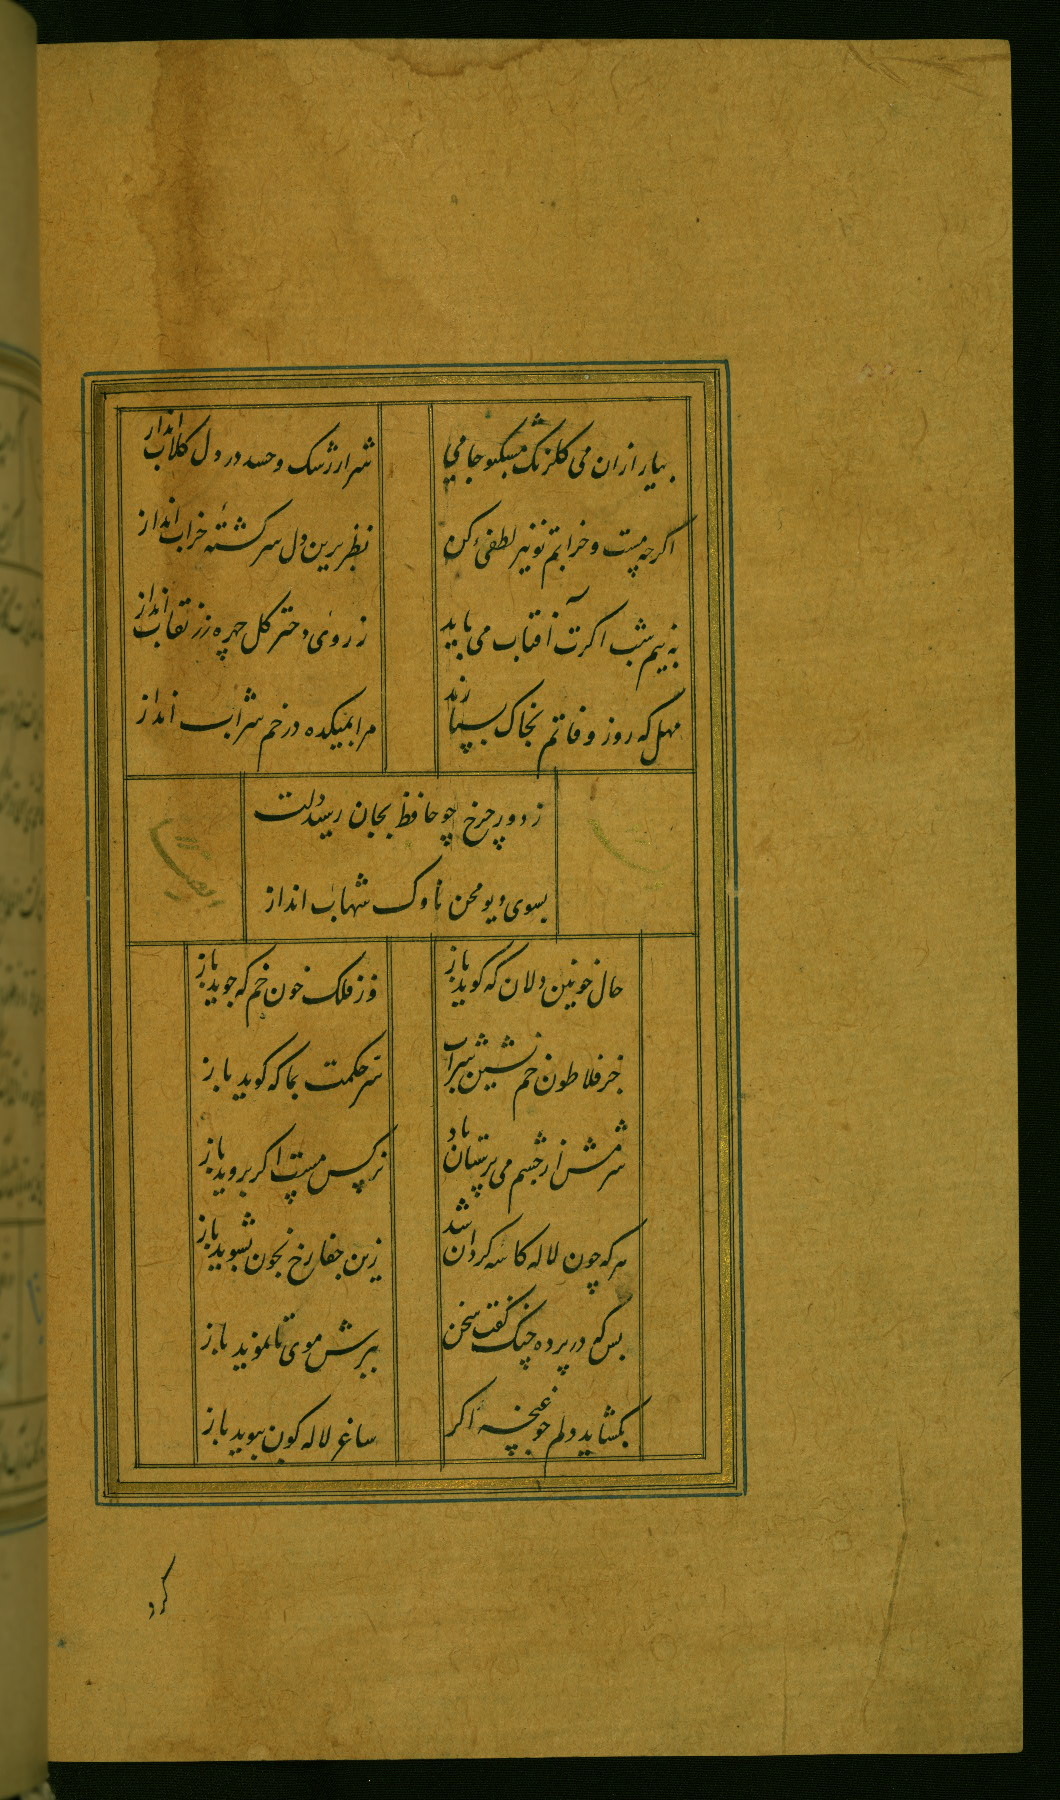 بیار ازان می کلرنک مشکبو جامی شرار رشک و حسد در دل کلاب انداز
اکرچه مست و خرابم تو نیز لطفی کن نظر برین دل سرکشته خراب انداز
به نیم شب اکرت آفتاب می باید ز روی دختر کل چهره رز نقاب انداز
مهل که روز وفاتم بخاک بسپارند مرا بمیکده در خم شراب انداز
ز دور چرخ چو حافظ بجان رسید دلت
بسوی دیو محن ناوک شهاب انداز
حال خونین دلان که کوید باز وز فلک خون خم که جوید باز
جز فلاطون خم نشین شراب سر حکمت بما که کوید باز
شرمش از چشم می پرستان باد نرکس مست اکر بروید باز
هر که چون لاله کاسه کردان شد زین جفا رخ بخون بشوید باز
بس که در پرده چنک کفت سخن ببرش موی تا نموید باز
بکشاید دلم چو غنچه اکر ساغر لاله کون ببوید باز
کرد